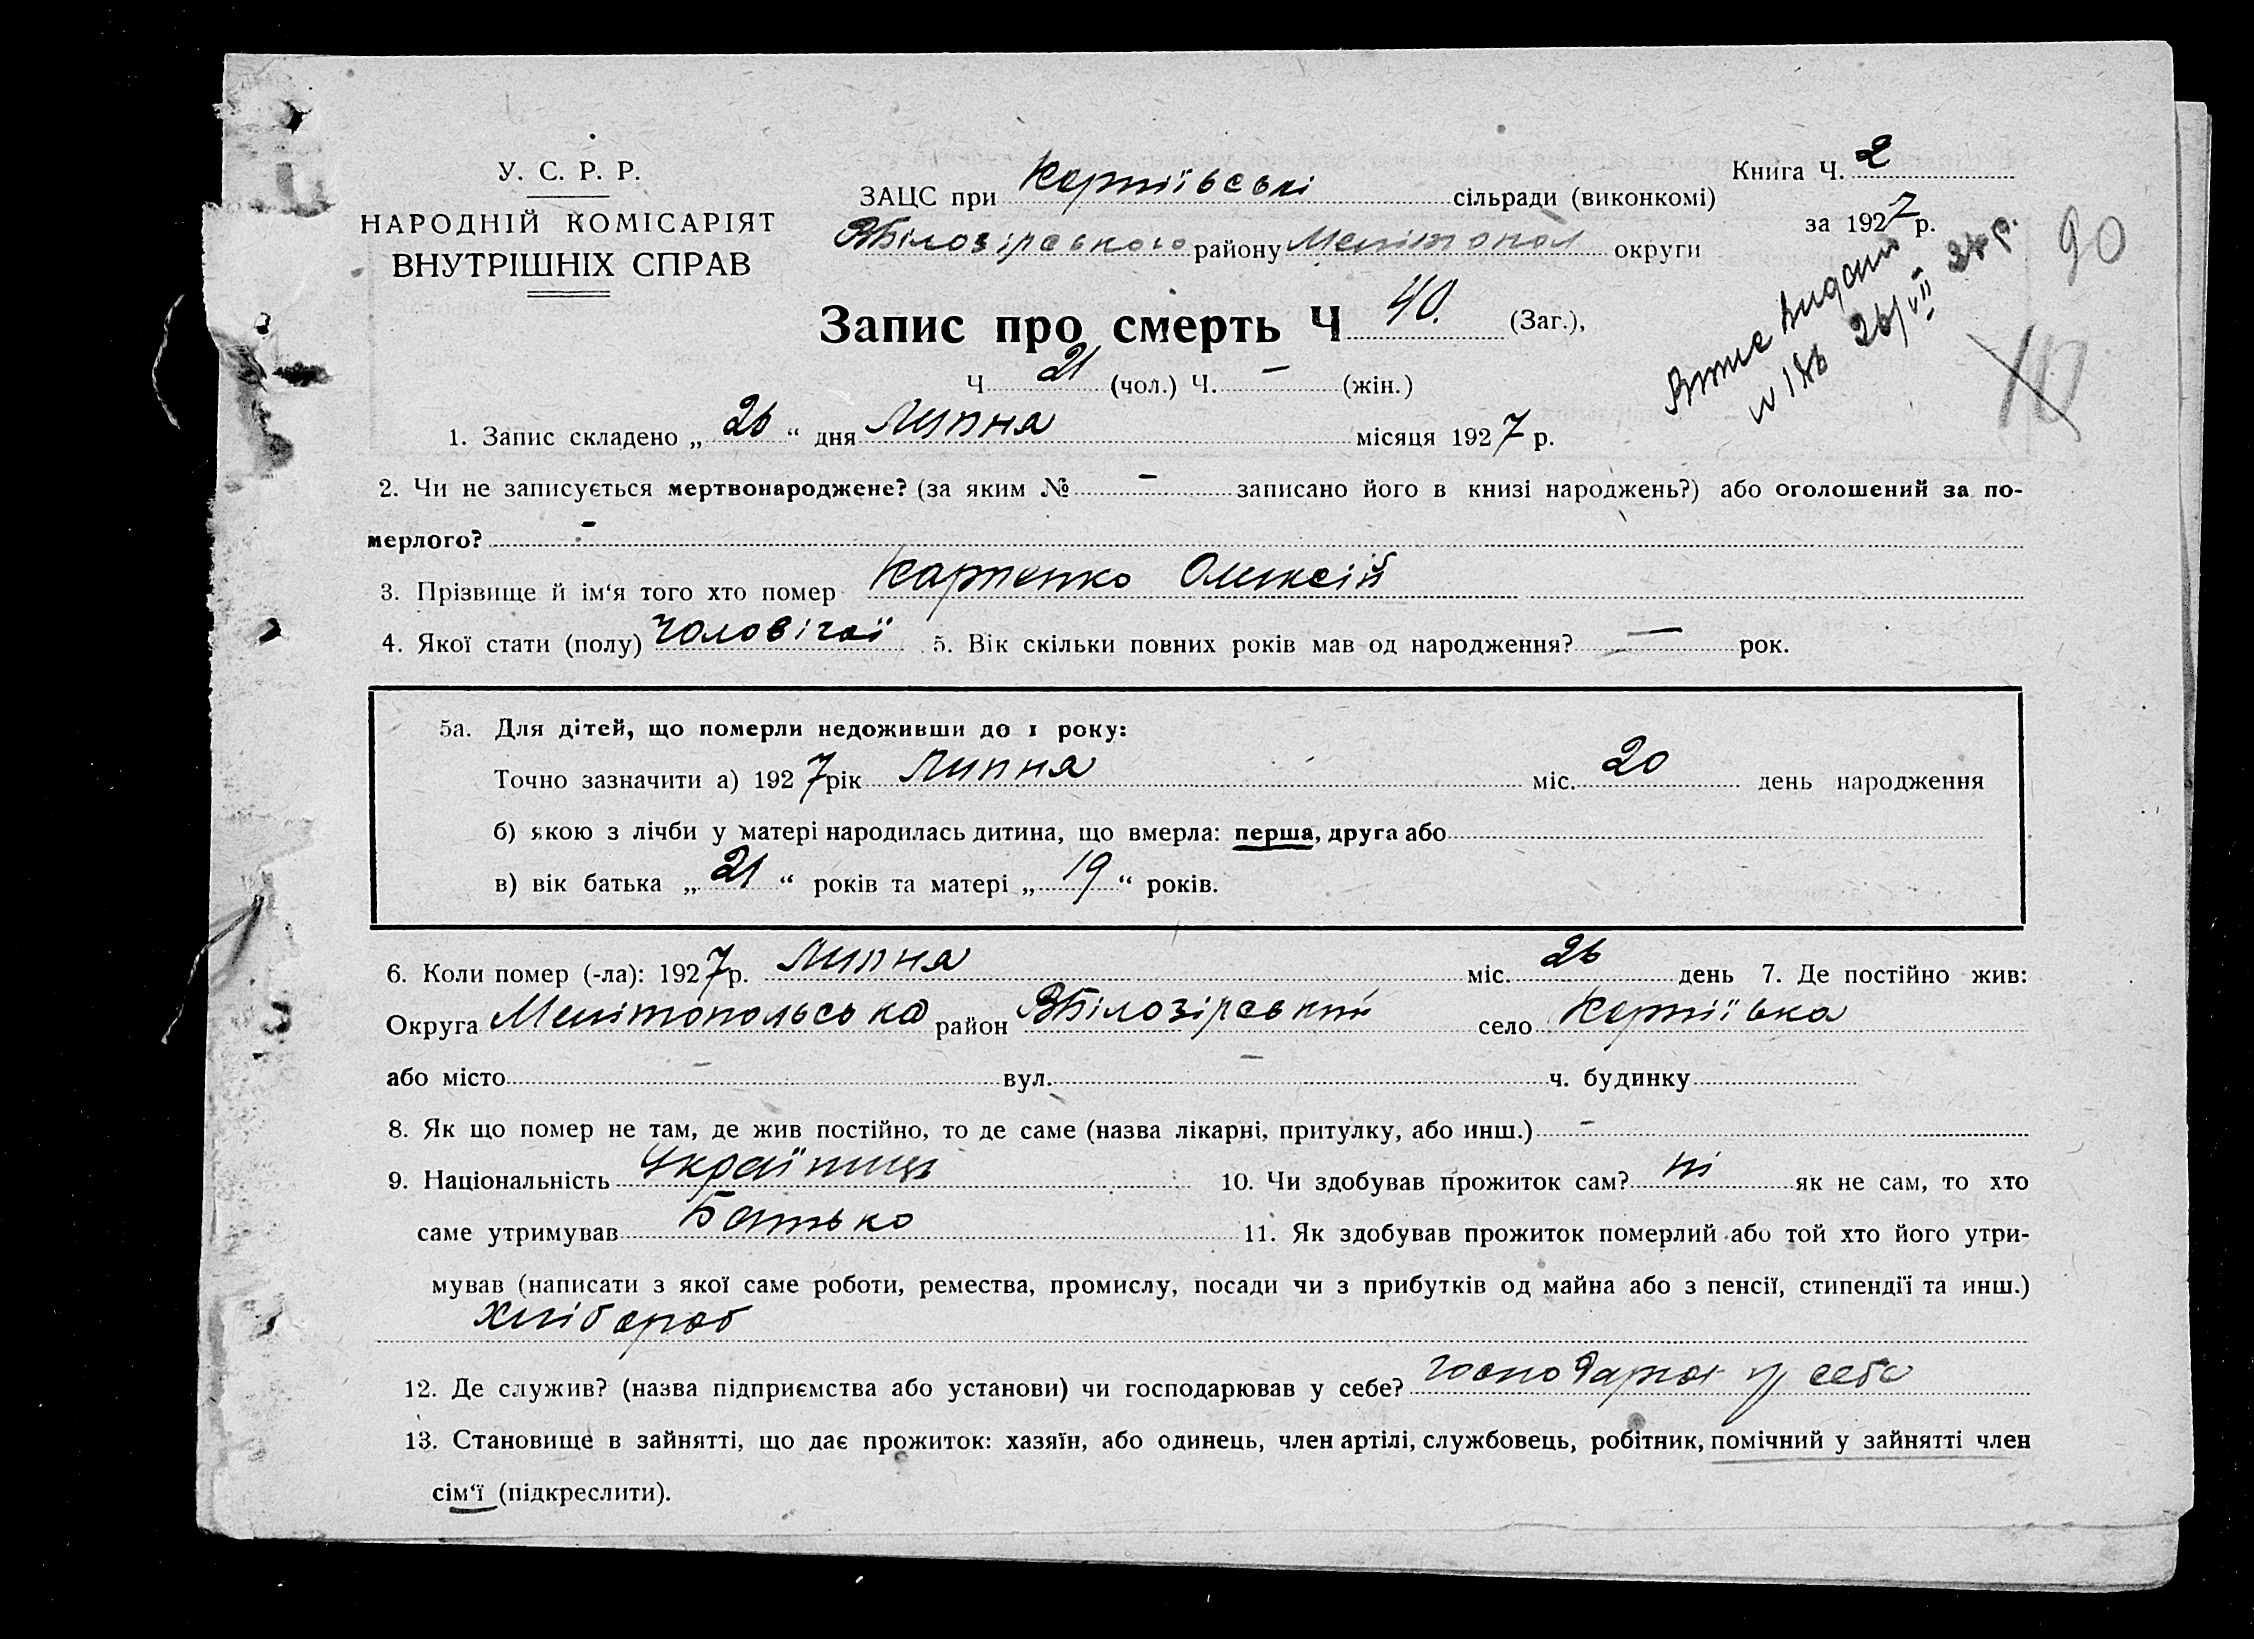 У. С. Р. Р.
НАРОДНІЙ КОМІСАРІЯТ
ВНУТРІШНІХ СПРАВ
Книга Ч. 2
за 1927 р.
90
ЗАЦС при сільради (виконкомі)
ВБілозірського району Мелітопол округи
Запис про смерть Ч 40. (Заг.),
Ч 21 (чол.) Ч. — (жін.)
Витяг видано
26/VII
10
1. Запис складено „ 26 “ дня Липня місяця 1927 р.
2. Чи не записується мертвонароджене? (за яким № — записано його в книзі народжень?) або оголошений за по-
мерлого? —
3. Прізвище й ім‘я того хто помер Карпенко Олексій
4. Якої стати (полу) чоловічої 5. Вік скільки повних років мав од народження? — рок.
5а. Для дітей, що померли недоживши до 1 року:
Точно зазначити а) 1927 рік Липня міс. 20 день народження
б) якою з лічби у матері народилась дитина, що вмерла: перша, друга або
в) вік батька „ 21 “ років та матері „ 19 “ років.
6. Коли помер (-ла): 1927 р. Липня міс. 26 день 7. Де постійно жив:
Округа Мелітопольська район ВБілозірський село
або місто — вул. — ч. будинку
8. Як що помер не там, де жив постійно, то де саме (назва лікарні, притулку, або инш.) —
9. Національність Українець 10. Чи здобував прожиток сам? ні як не сам, то хто
саме утримував Батько 11. Як здобував прожиток померлий або той хто його утри-
мував (написати з якої саме роботи, ремества, промислу, посади чи з прибутків од майна або з пенсії, стипендії та инш.)
Хлібороб
12. Де служив? (назва підприємства або установи) чи господарював у себе? у себе
13. Становище в зайнятті, що дає прожиток: хазяїн, або одинець, член артілі, службовець, робітник, помічний у зайнятті член
сім‘ї (підкреслити).